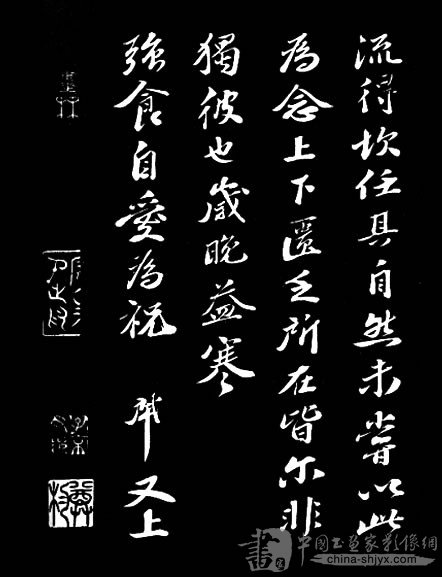 流得坎任其自然未嘗以此
為念上下匱乏所在皆尔非
獨彼也歲晚益寒
強食自愛為祝 軾又上
書
中國書畫家影像網
china-shjyx.com